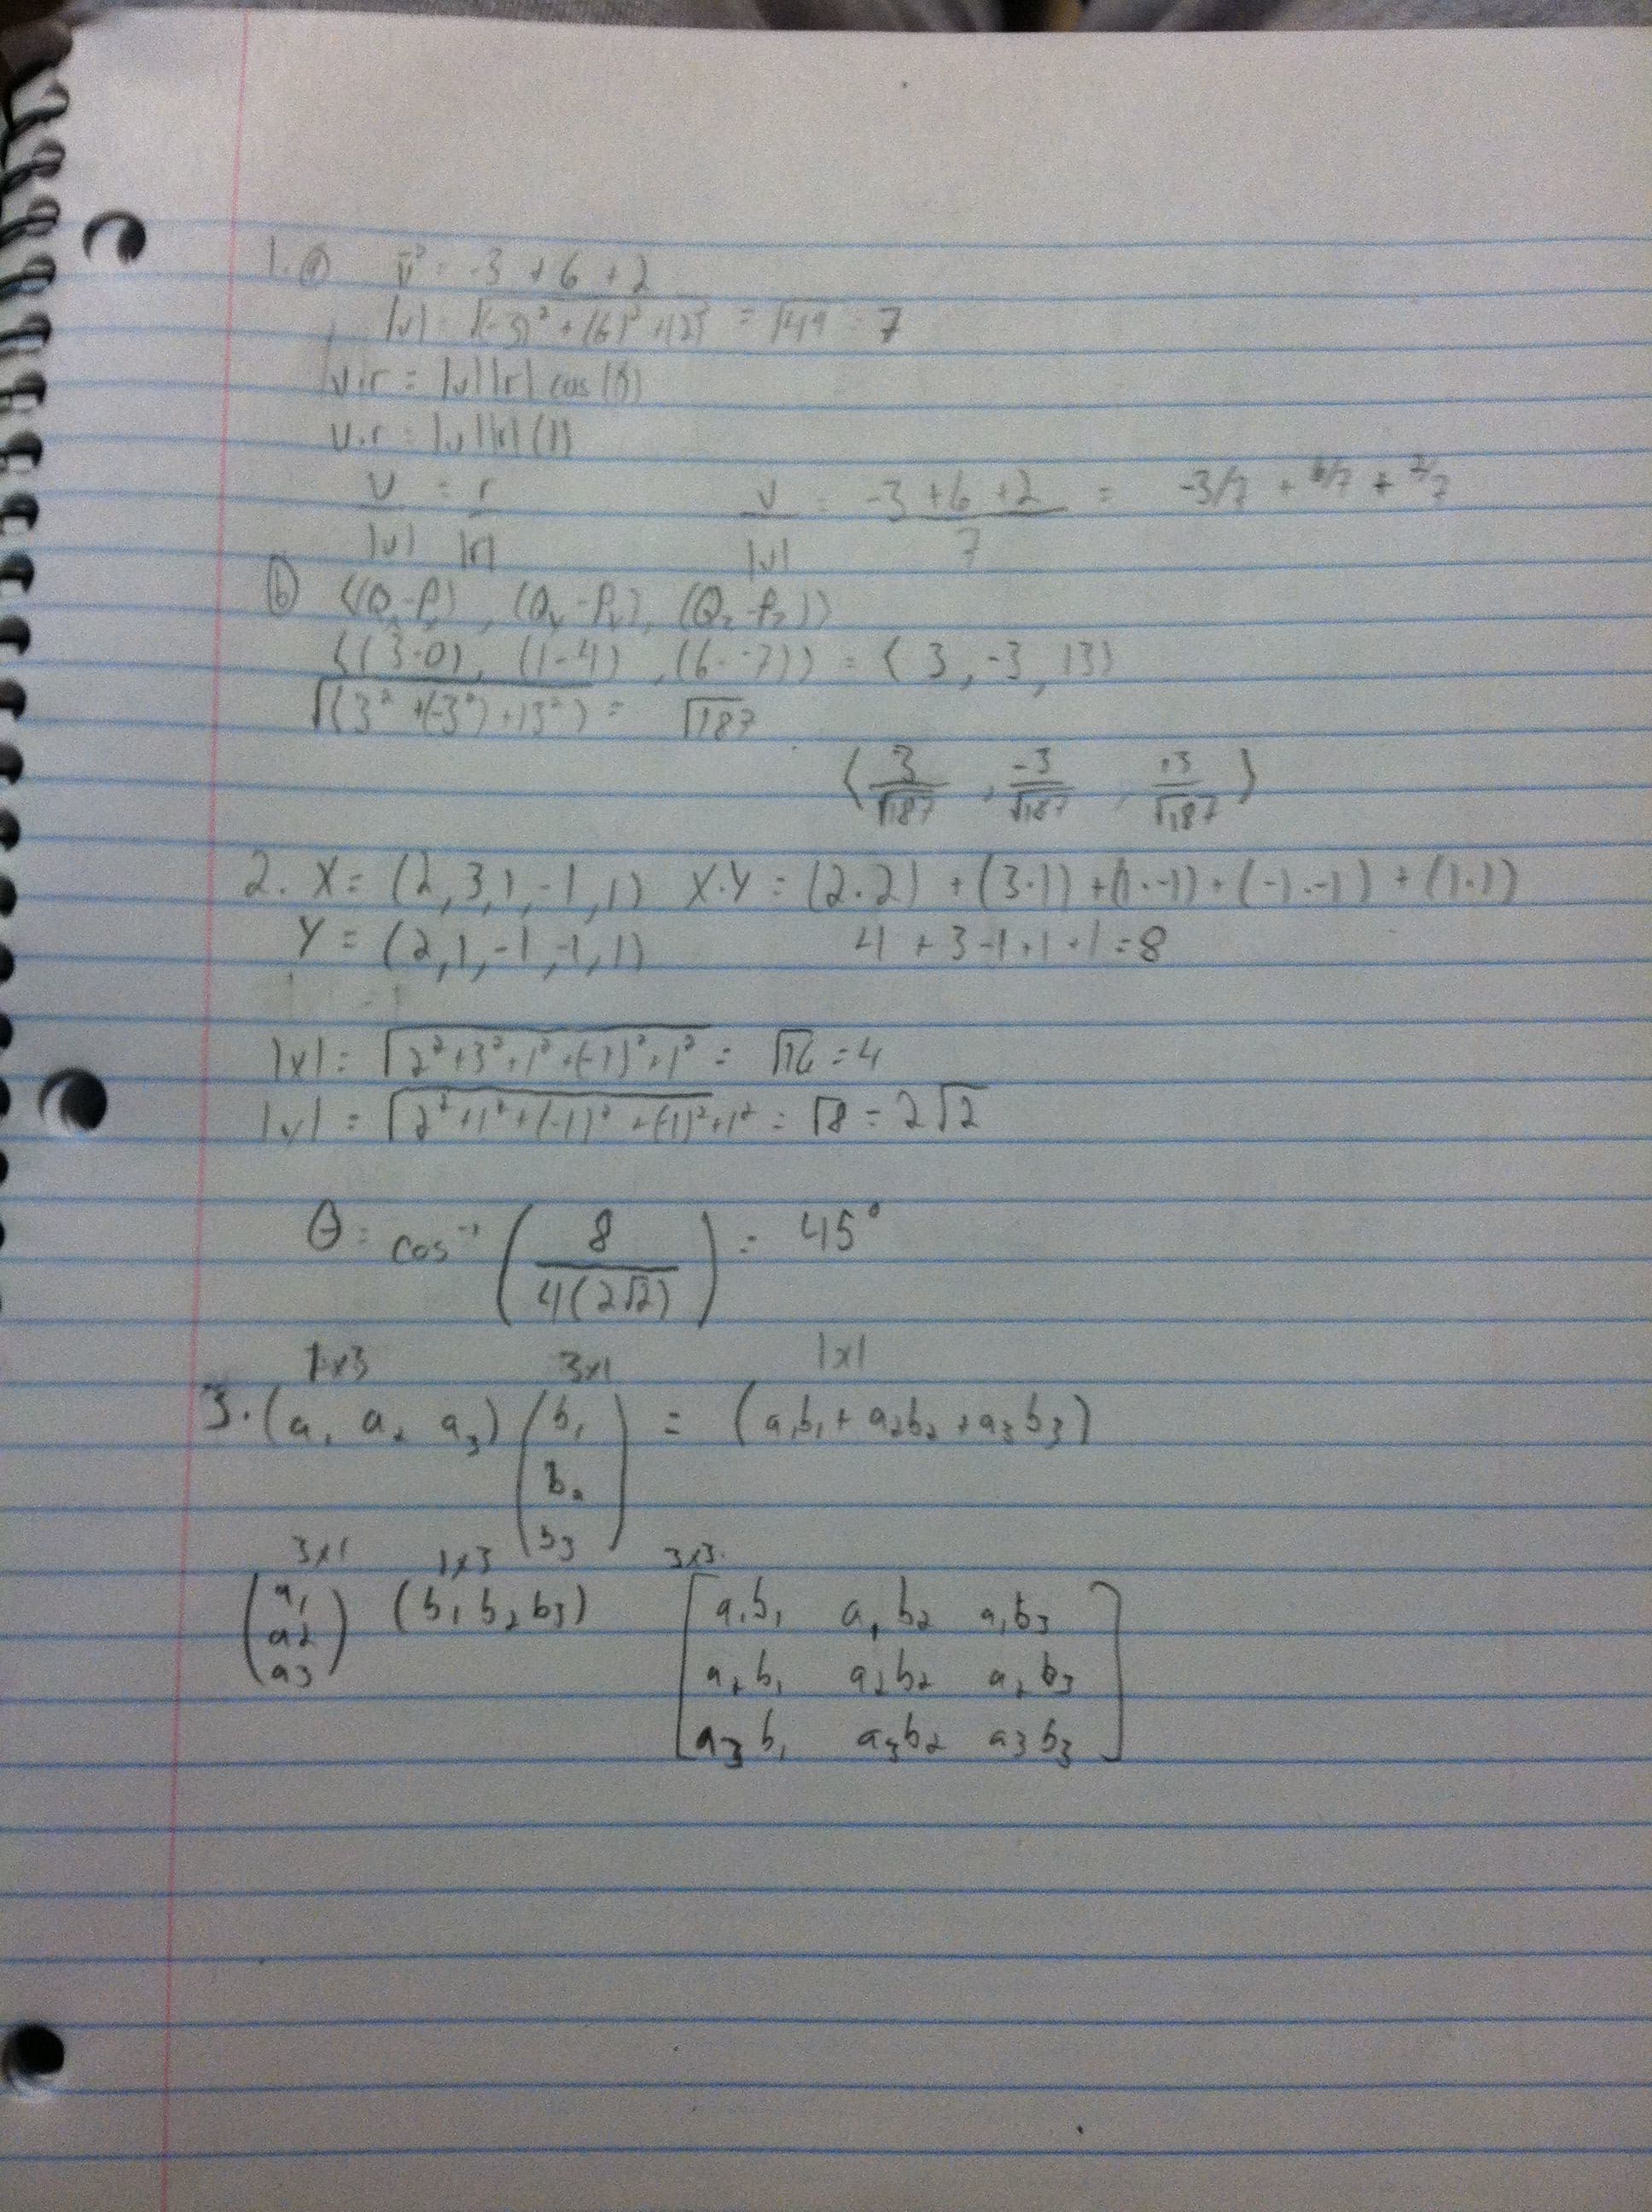 1. ⓐ v⃗ = -3 + 6 + 2
|v| = √(-3)² + (6)² + (2)² = √49 = 7
v·r = |v||r| cos(θ)
v·r = |v||r|(1)
v/|v| = r/|r|   v/|v| = (-3 + 6 + 2)/7 = -3/7 + 6/7 + 2/7
ⓑ ⟨(Qₓ-Pₓ), (Qᵧ-Pᵧ), (Q_z-P_z)⟩
⟨(3-0), (1-4), (6--7)⟩ = ⟨3, -3, 13⟩
√(3² + (-3²) + 13²) = √187
⟨3/√187, -3/√187, 13/√187⟩
2. X = (2,3,1,-1,1) X·Y = (2·2) + (3·1) + (1·-1) + (-1·-1) + (1·1)
Y = (2,1,-1,-1,1) 4 + 3 - 1 + 1 + 1 = 8
|x| = √2² + 3² + 1² + (-1)² + 1² = √16 = 4
|y| = √2² + 1² + (-1)² + (-1)² + 1² = √8 = 2√2
θ = cos⁻¹ (8/4(2√2)) = 45°
1x3 3x1 1x1
3. (a₁ a₂ a₃) (b₁ = (a₁b₁ + a₂b₂ + a₃b₃)
b₂
b₃)
3x1 1x3 3x3
(a₁ (b₁ b₂ b₃) [a₁b₁ a₁b₂ a₁b₃
a₂
a₃) a₂b₁ a₂b₂ a₂b₃
a₃b₁ a₃b₂ a₃b₃]